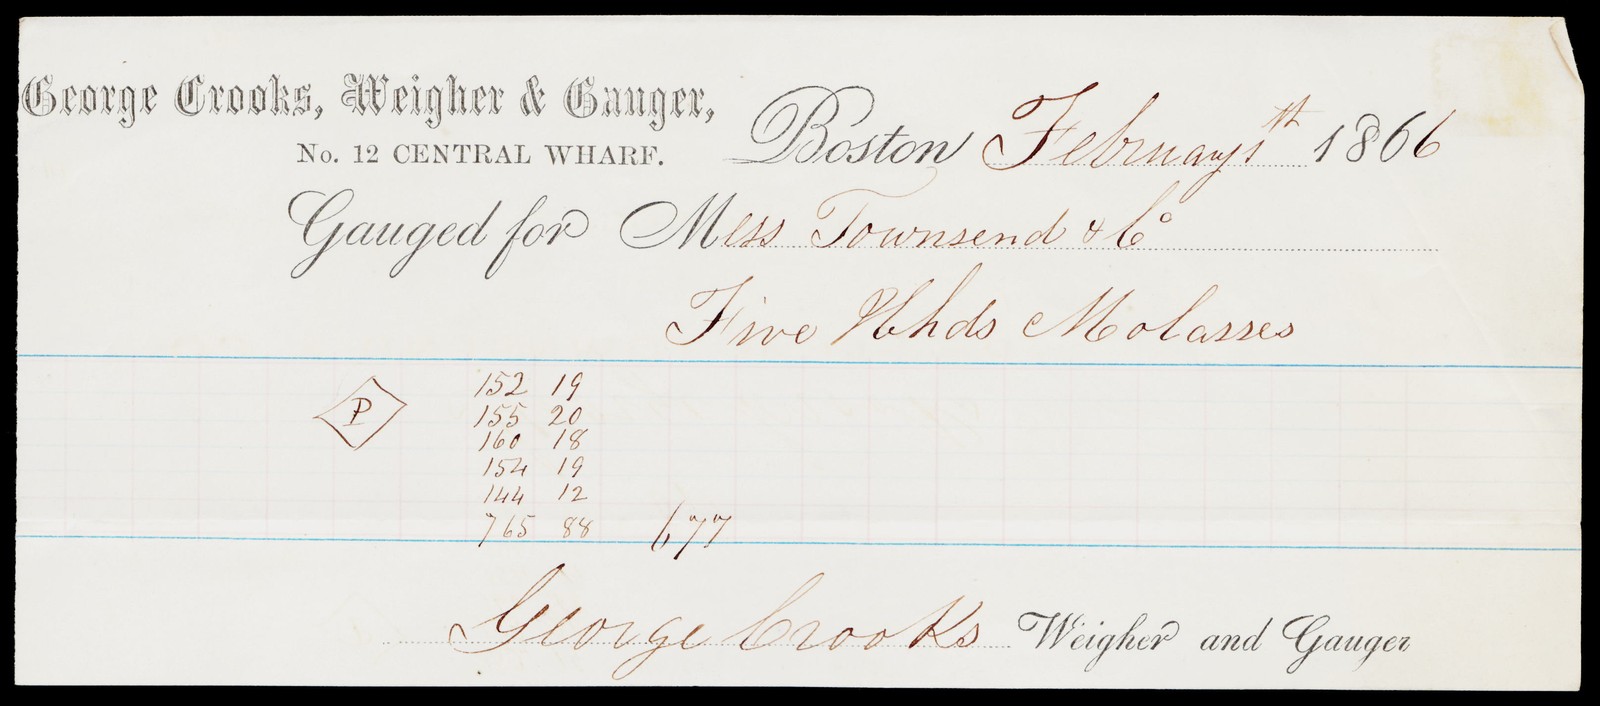 George Crooks, Weigher & Gauger,
No. 12 CENTRAL WHARF.
Boston February 1th 1866
Gauged for Mess Townsend & Co
Five Hhds Molasses
P
152 19
155 20
160 18
154 19
144 12
765 88 677
George Crooks Weigher and Gauger